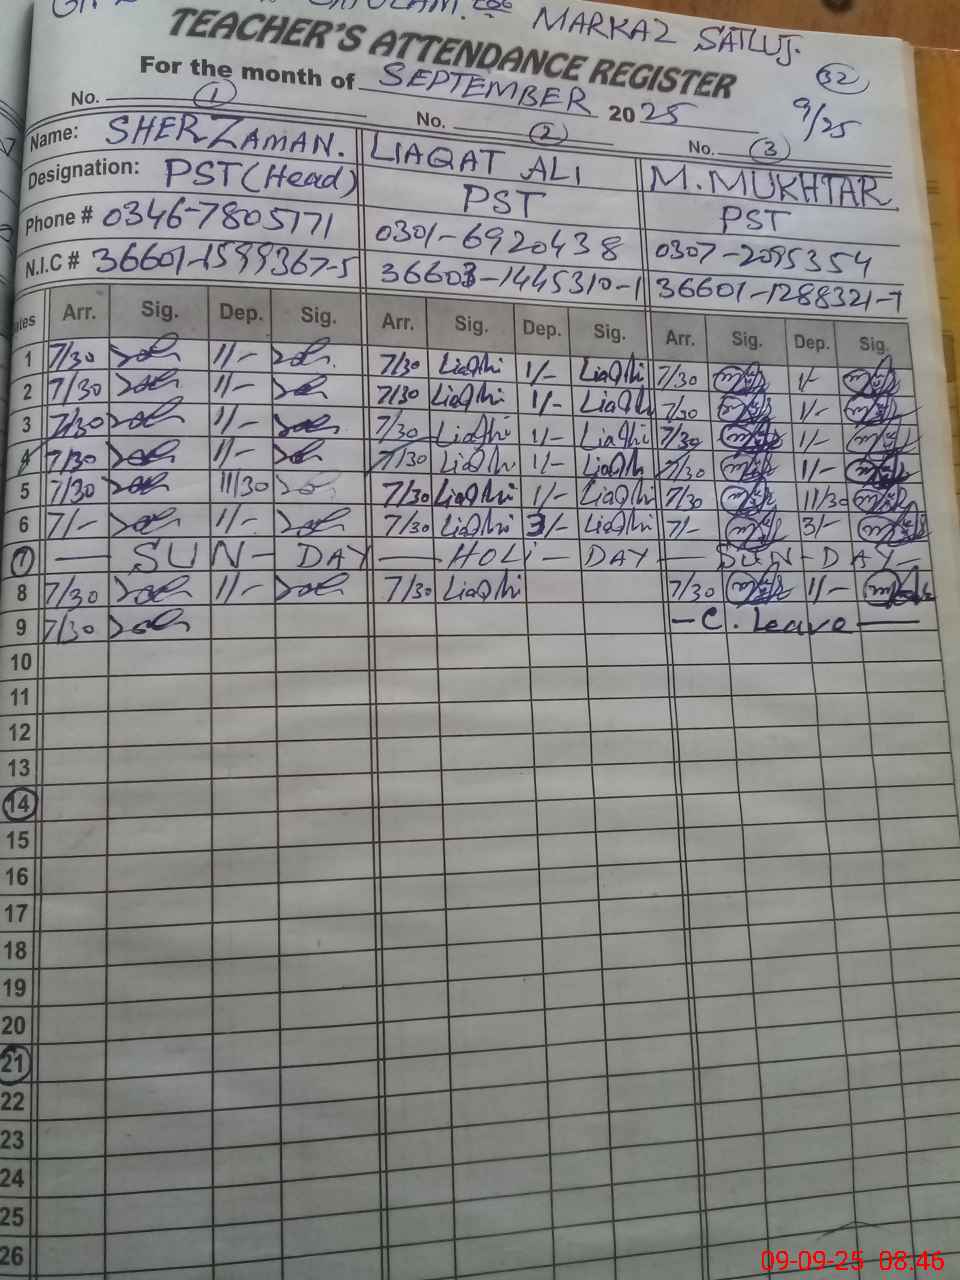 MARKAZ SATLUJ.
TEACHER'S ATTENDANCE REGISTER
32
For the month of SEPTEMBER 2025
9/25
No. 1 No. 2 No. 3
Name: SHER ZAMAN. LIAQAT ALI M. MUKHTAR
Designation: PST (Head) PST PST
Phone # 0346-7805171 0301-6920438 0307-2095354
N.I.C # 36601-1599367-5 36603-1445310-1 36601-1288321-7
Arr. Sig. Dep. Sig. Arr. Sig. Dep. Sig. Arr. Sig. Dep. Sig.
1 7/30 11/- 7/30 LiaQhi 1/- LiaQhi 7/30 1/-
2 7/30 11/- 7/30 LiaQhi 1/- LiaQhi 7/30 1/-
3 7/30 11/- 7/30 LiaQhi 1/- LiaQhi 7/30 1/-
4 7/30 11/- 7/30 LiaQhi 1/- LiaQhi 7/30 1/-
5 7/30 11/30 7/30 LiaQhi 1/- LiaQhi 7/30 11/30
6 7/- 11/- 7/30 LiaQhi 3/- LiaQhi 7/- 3/-
7 — SUN - DAY — HOLI - DAY — SUN - DAY —
8 7/30 11/- 7/30 LiaQhi 7/30 1/-
9 7/30 - C. Leave -
10
11
12
13
14
15
16
17
18
19
20
21
22
23
24
25
26
09-09-25 08:46